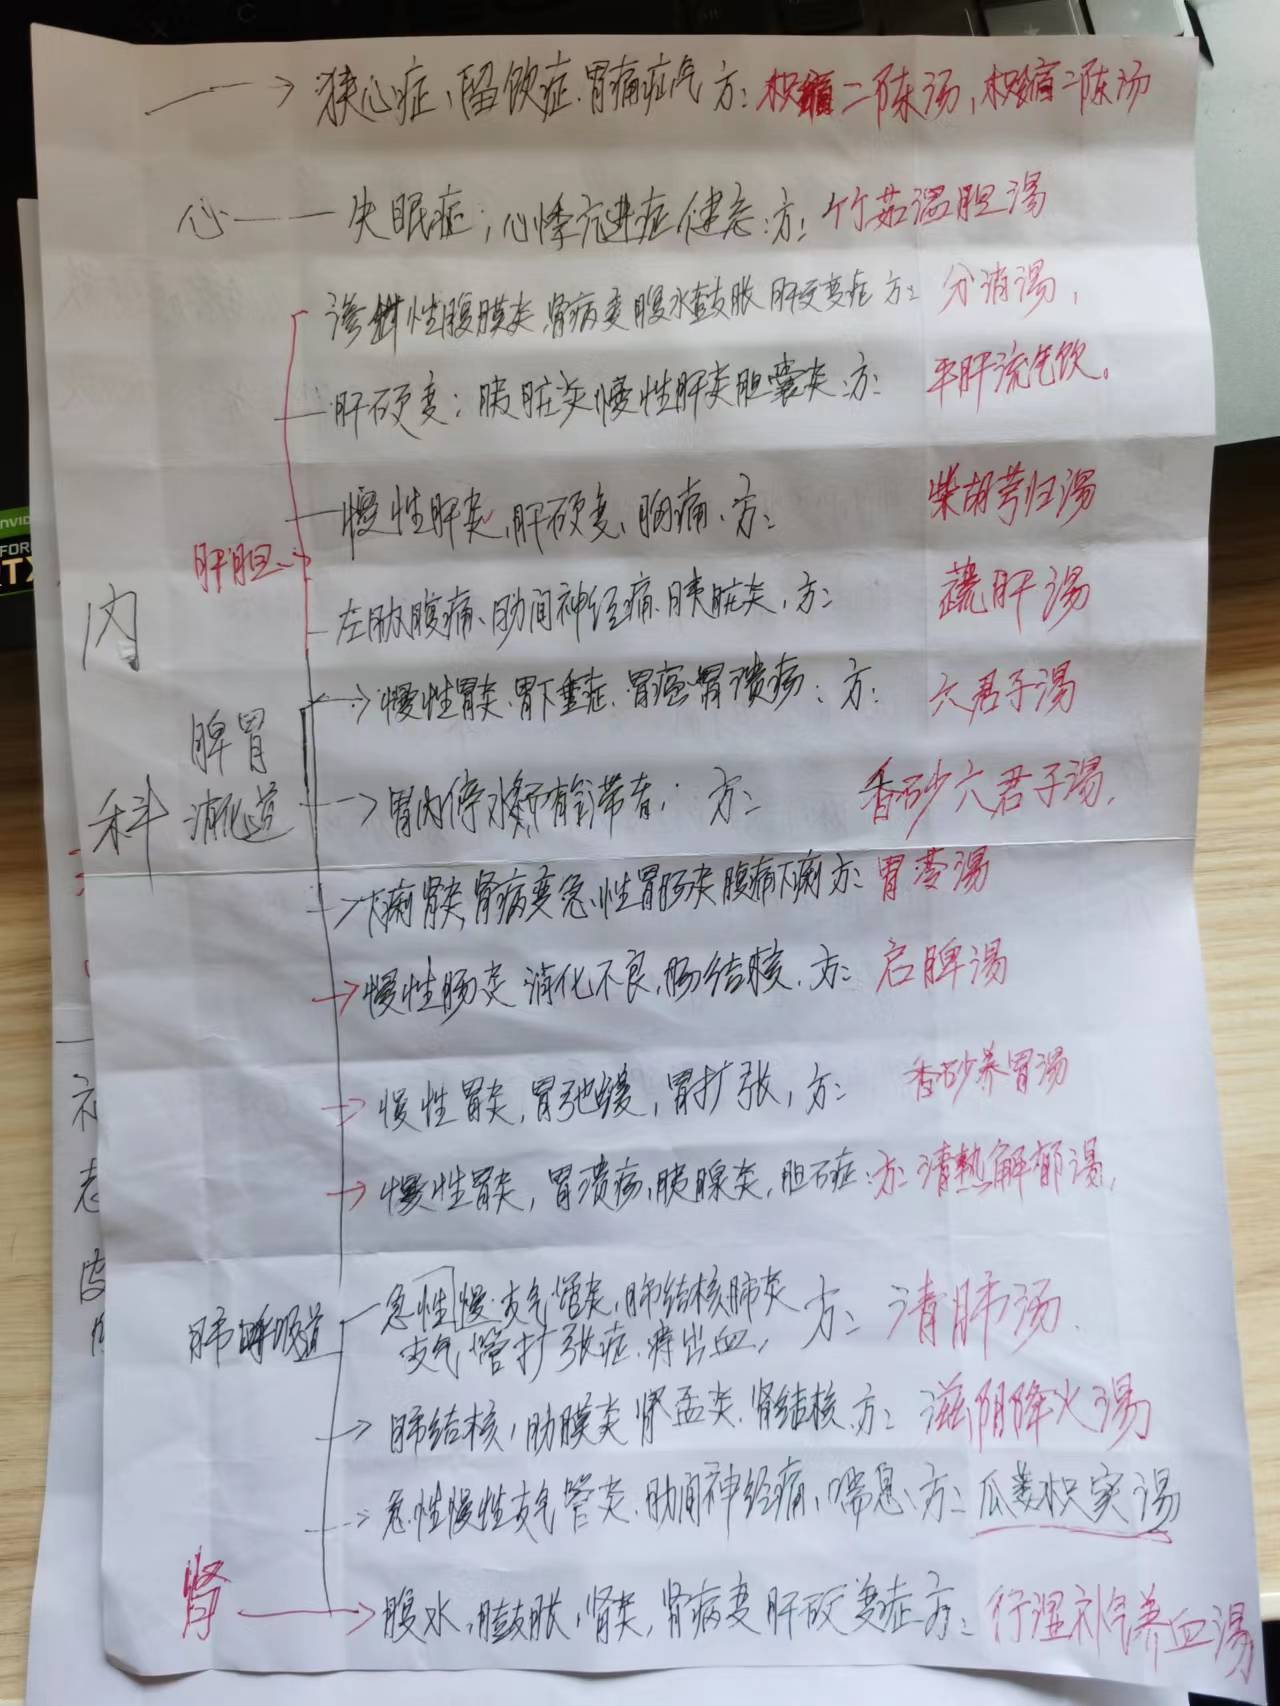 狭心症、留饮症、胃痛症气 方：枳缩二陈汤，枳缩二陈汤
心 失眠症；心悸亢进症健忘：方：竹茹温胆汤
渗出性腹膜炎 肾病变腹水鼓胀 肝硬变症 方：分消汤，
肝硬变；胰脏炎慢性肝炎胆囊炎：方：平肝流气饮。
慢性肝炎，肝硬变、胸痛、方：柴胡芎归汤
肝胆
左肋腹痛、肋间神经痛、胰脏炎，方：疏肝汤
内
慢性胃炎、胃下垂症、胃癌胃溃疡：方：六君子汤
脾胃
科 消化道
胃内停水 方：香砂六君子汤，
下痢肾炎，肾病变急性胃肠炎腹痛下痢 方：胃苓汤
慢性肠炎 消化不良，肠结核．方：启脾汤
慢性胃炎，胃弛缓，胃扩张，方：香砂养胃汤
慢性胃炎，胃溃疡，胰腺炎，胆石症：方：清热解郁汤，
肺呼吸道
急性慢支气管炎，肺结核肺炎 方：清肺汤．
支气管扩张症．痔出血，
肺结核，肋膜炎 肾盂炎．肾结核．方：滋阴降火汤
急性慢性支气管炎．肋间神经痛、喘息、方：瓜蒌枳实汤
肾 腹水，鼓胀，肾炎，肾病变肝硬变症 方：行湿补气养血汤
NVID
FOR